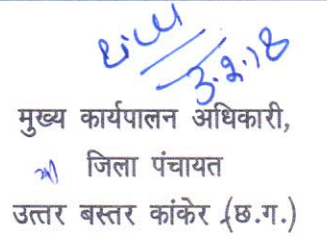 3.2.18
मुख्य कार्यपालन अधिकारी,
जिला पंचायत
उत्तर बस्तर कांकेर (छ.ग.)